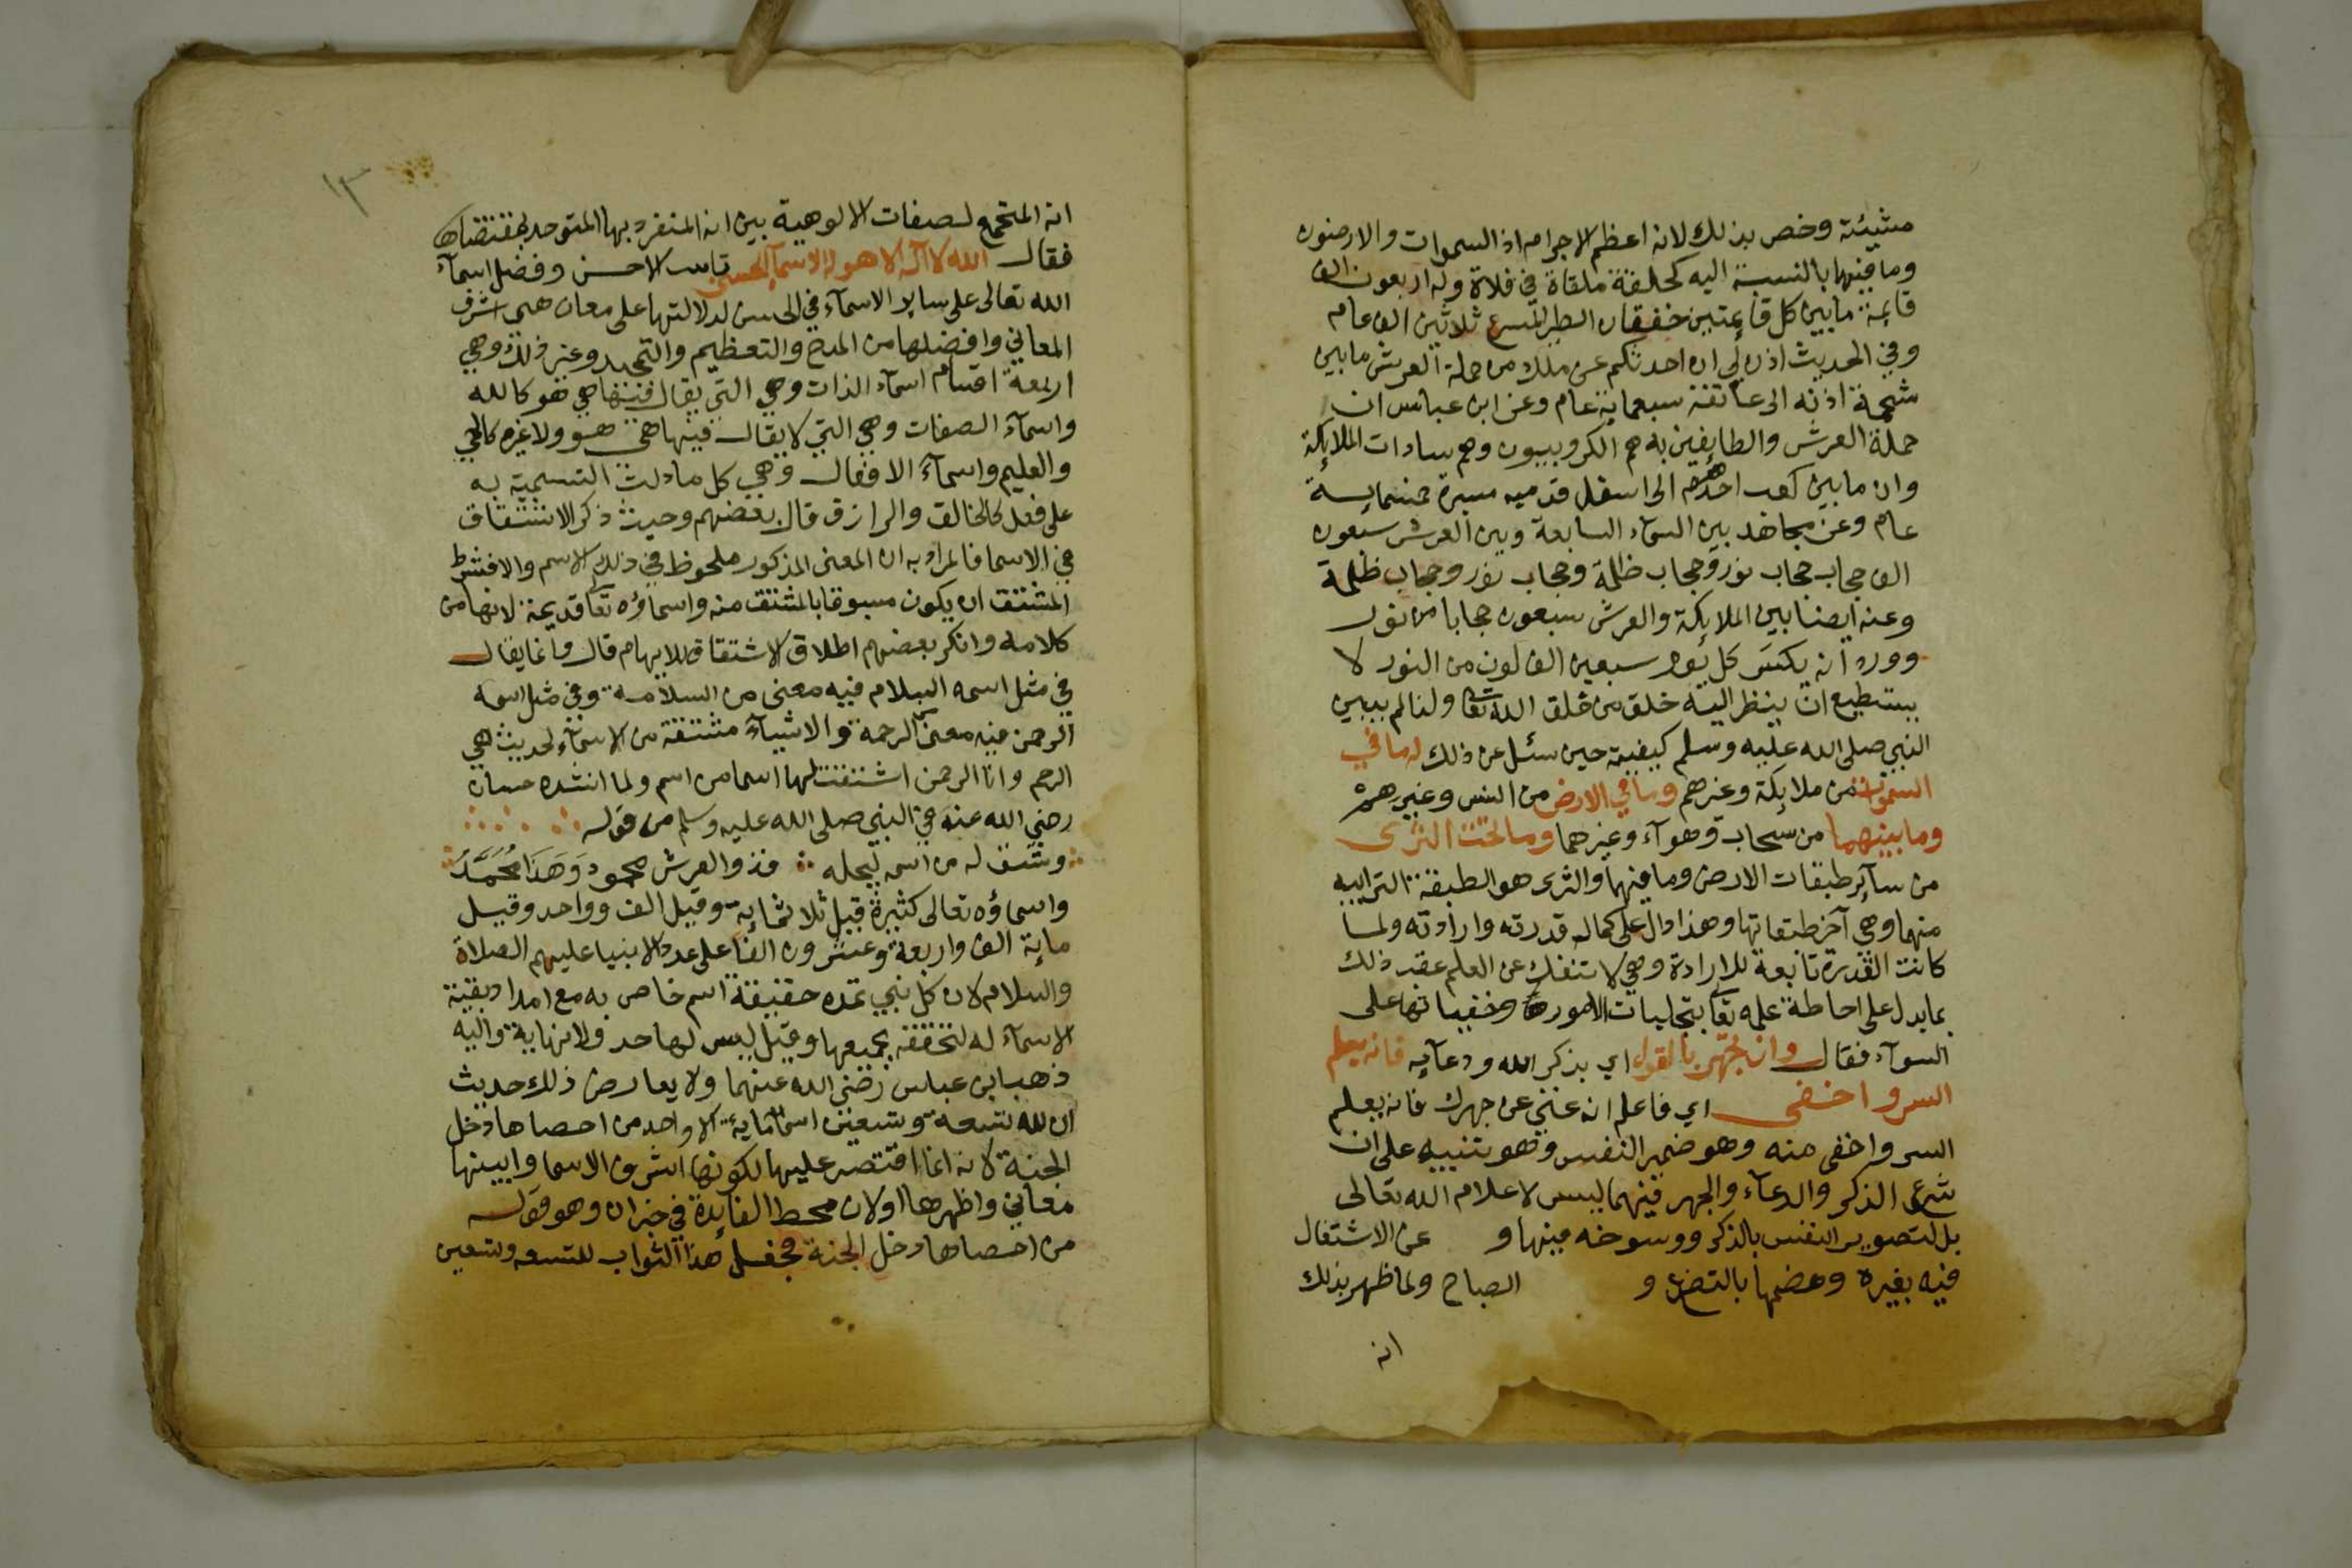 مشيئته وخص بذلك لانه اعظم الاجرام اذ السموات والارضون
وما فيهما بالنسبة اليه كحلقة ملقاة في فلاة وله اربعون الف
قايمة ما بين كل قايمتين خفقان الطير المسرع ثلاثين الف عام
وفي الحديث اذن لي ان احدثكم عن ملك من حملة العرش ما بين
شحمة اذنه الى عاتقه سبعماية عام وعن ابن عباس ان
حملة العرش والطايفين به هم الكروبيون وهم سادات الملايكة
وان ما بين كعب احدهم الى اسفل قدميه مسيرة خمسماية
عام وعن مجاهد بين السمآء السابعة وبين العرش سبعون
الف حجاب حجاب نور وحجاب ظلمة وحجاب نور وحجاب ظلمة
وعنه ايضا بين الملايكة والعرش سبعون حجابا من نور
وورد انه يكسَى كل يوم سبعين الف لون من النور لا
يستطيع ان ينظر اليه خلق من خلق الله تعا ولذا لم يبين
النبي صلى الله عليه وسلم كيفيته حين سئل عن ذلك له ما في
السموات من ملايكة وغيرهم وما في الارض من انس وغيرهم
وما بينهما من سحاب وهوآء وغيرهما وما تحت الثرى
من سآير طبقات الارض وما فيها والثرى هو الطبقة الترابيه
منها وهي آخر طبقاتها وهذا دال على كمال قدرته وارادته ولما
كانت القدرة تابعة للارادة وهي لا تنفك عن العلم عقب ذلك
بما يدل على احاطة علمه تعا بتجليات الامور وخفياتها على
السوآء فقال وان تجهر بالقول اي بذكر الله ودعآيه فانه يعلم
السر واخفى اي فاعلم انه غني عن جهرك فانه يعلم
السر واخفى منه وهو ضمير النفس وهو تنبيه على ان
شرع الذكر والدعآء والجهر فيهما ليس لاعلام الله تعالى
بل لتصوير النفس بالذكر ورسوخه فيها و عن الاشتغال
فيه بغيره وهضمها بالتضرع و الصباح ولما ظهر بذلك
انه
١٣
انه المتجمع لصفات الالوهية بين انه المنفرد بها المتوحد بمقتضاها
فقال الله لا اله الا هو له الاسمآ الحسنى تانيث الاحسن وفضل اسمآء
الله تعالى على ساير الاسمآء في الحسن لدلالتها على معان هي اشرف
المعاني وافضلها من المدح والتعظيم والتمجيد وغير ذلك وهي
اربعة اقسام اسمآء الذات وهي التي يقال فيها هي هو كالله
واسمآء الصفات وهي التي لا يقال فيها هي هو ولا غيره كالحي
والعليم واسمآء الافعال وهي كل ما دلت التسمية به
على فعل كالخالق والرازق قال بعضهم وحيث ذكر الاشتقاق
في الاسما فالمراد به ان المعنى المذكور ملحوظ في ذلك الاسم والا فشرط
المشتق ان يكون مسبوقا بالمشتق منه واسماؤه تعا قديمة لانها من
كلامه وانكر بعضهم اطلاق الاشتقاق للايهام قال وانما يقال
في مثل اسمه السلام فيه معنى من السلامة وفي مثل اسمه
الرحمن فيه معنى الرحمة والاشيآء مشتقة من الاسمآء لحديث هي
الرحم وانا الرحمن اشتققت لها اسما من اسم ولما انشده حسان
رضي الله عنه في النبي صلى الله عليه وسلم من قوله
وشق له من اسمه ليجله فذو العرش محمود وَهَذَا مُحَمَّدَ
واسماؤه تعالى كثيرة قيل ثلاثماية وقيل الف وواحد وقيل
ماية الف واربعة وعشرون الفا على عدد الانبيا عليهم الصلاة
والسلام لان كل نبي تمده حقيقة اسم خاص به مع امداد بقية
الاسمآء له لتحققه بجميعها وقيل ليس لها حد ولا نهاية واليه
ذهب ابن عباس رضي الله عنهما ولا يعارض ذلك حديث
ان لله تسعة وتسعين اسما ماية الا واحد من احصاها دخل
الجنة لانه انما اقتصر عليها لكونها اشرف الاسما وابينها
معاني واظهرها اولان محط الفايدة في خبر ان وهو قوله
من احصاها دخل الجنة فجعل هذا الثواب للتسعه وتسعين